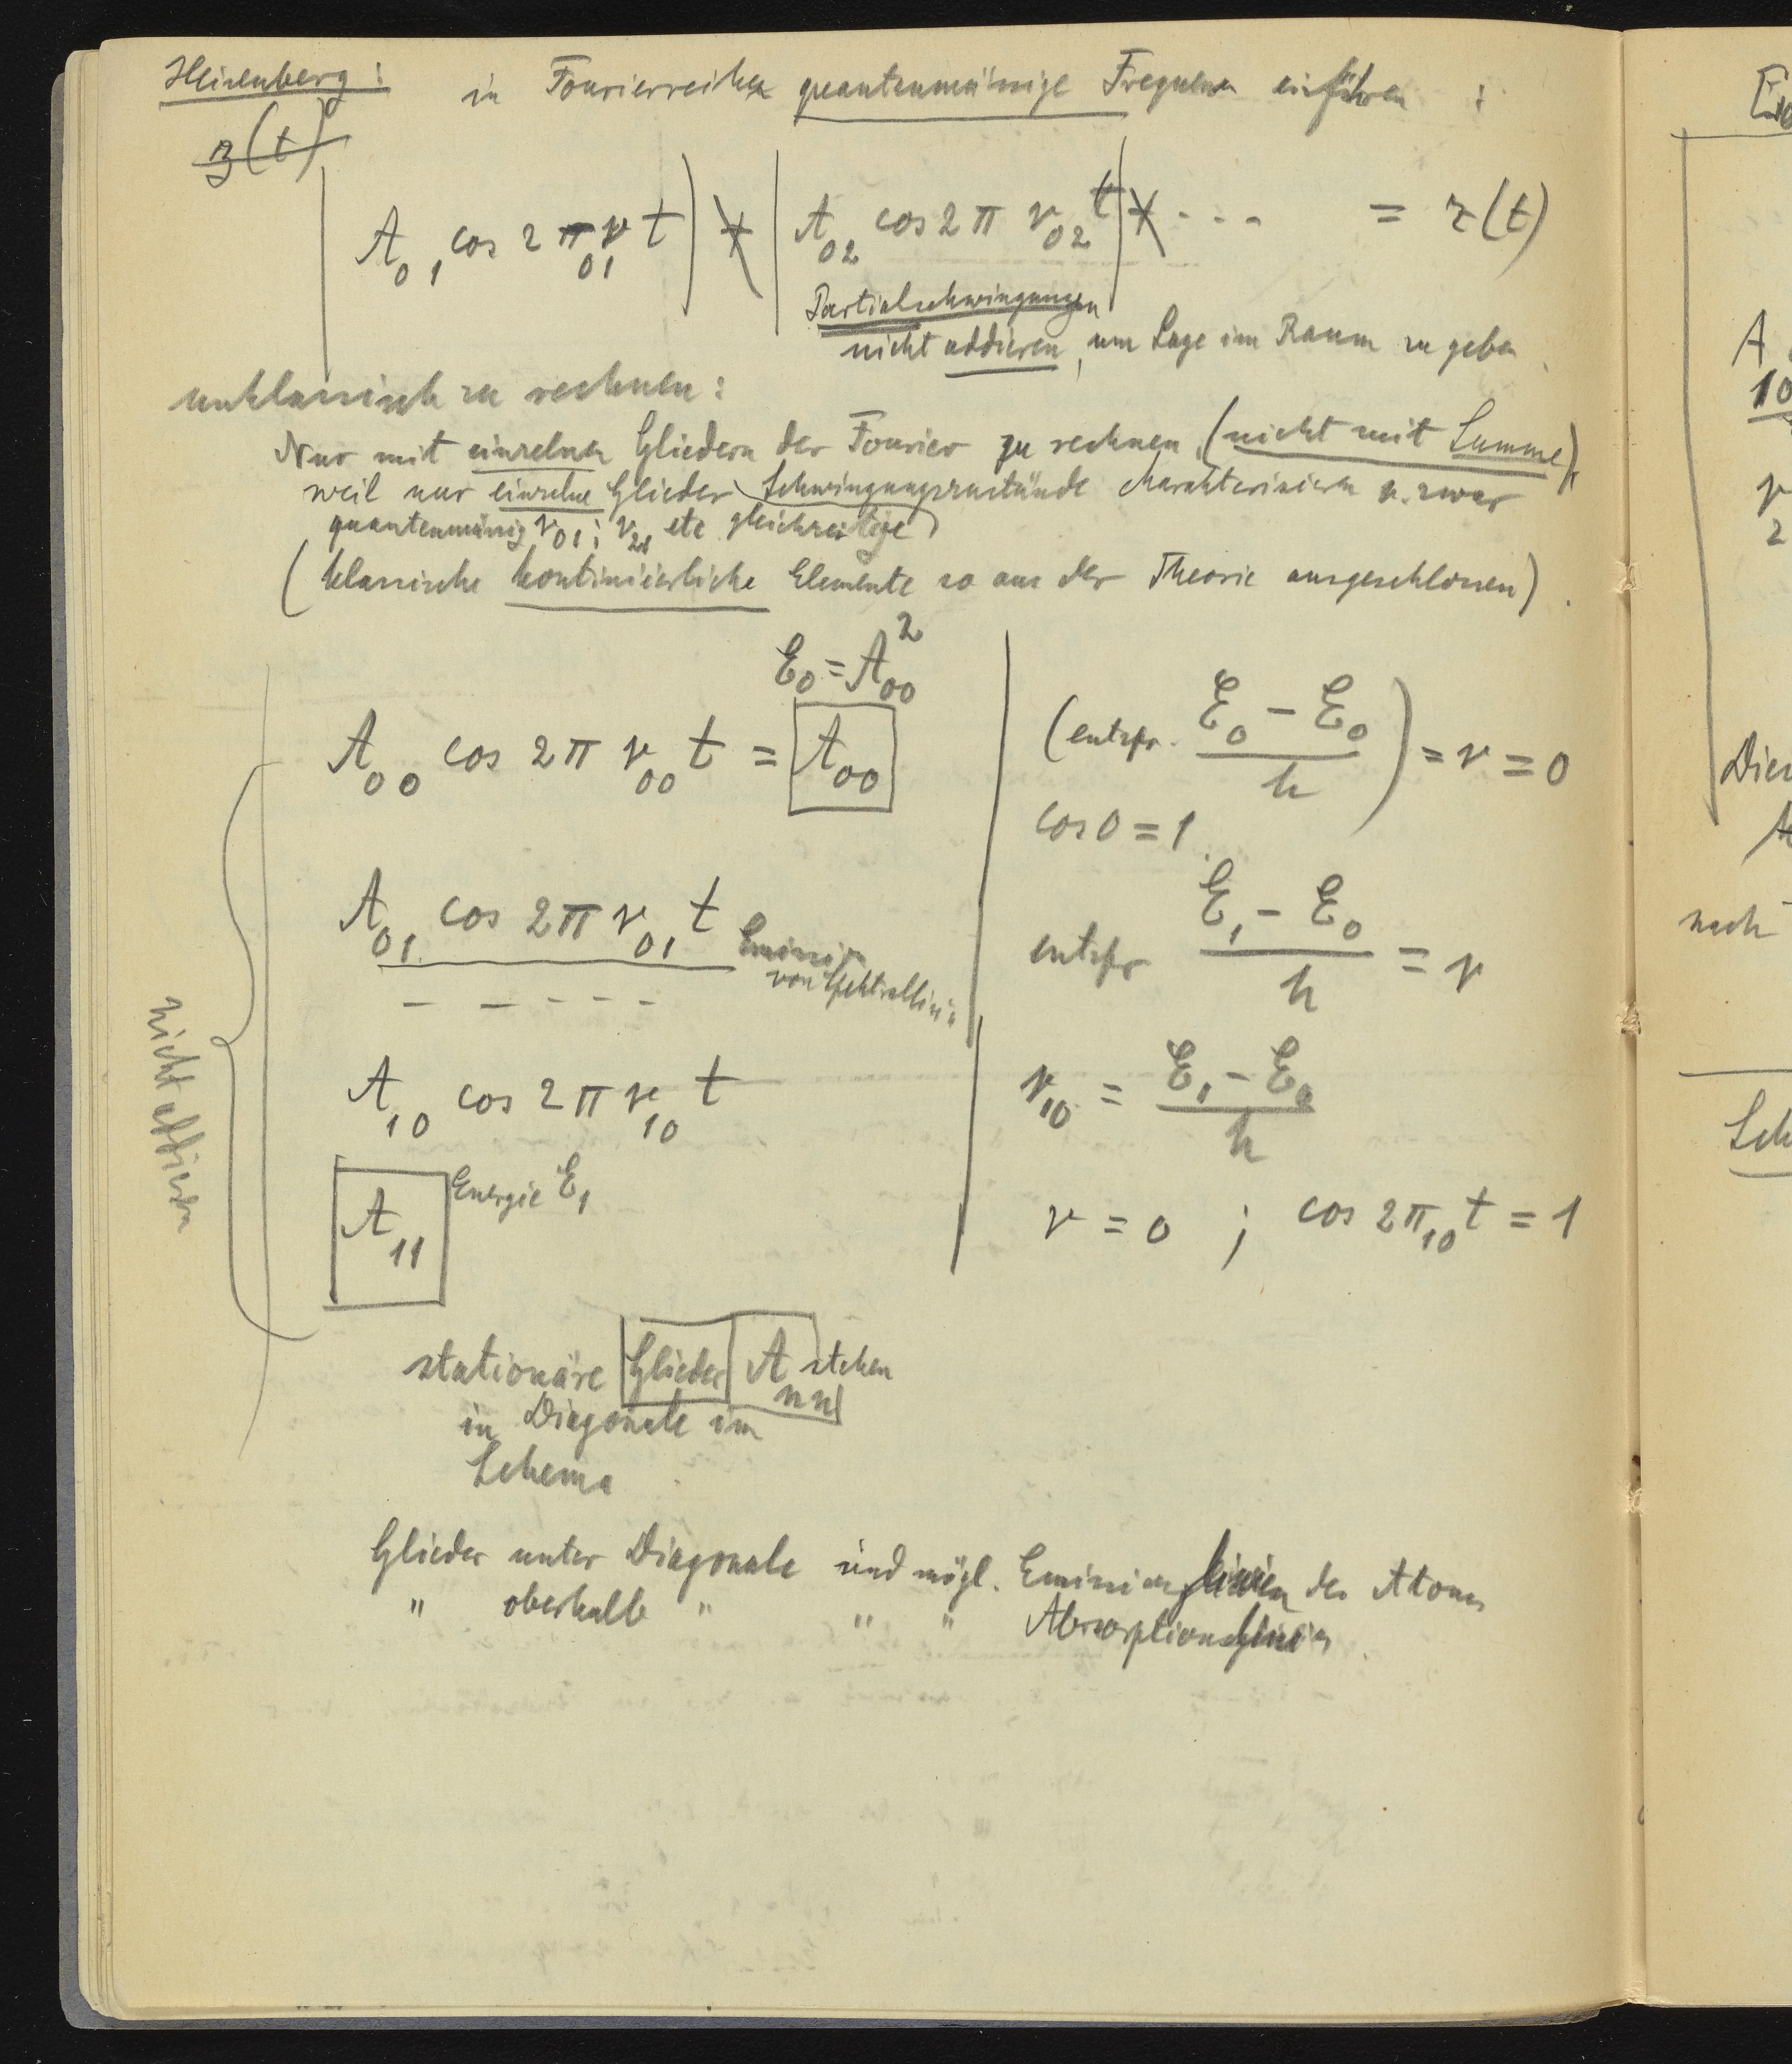 Heisenberg: in Fourierreihe quantenmässige Frequenz einführen :
z(t)
A₀₁ cos 2πν₀₁ t | + | A₀₂ cos 2π ν₀₂ t | + . . . = z(t)
Partialschwingungen
nicht addieren, um Lage im Raum zu geben.
unklassisch zu rechnen:
Nur mit einzelnen Gliedern der Fourier zu rechnen, (nicht mit Summe),
weil nur einzelne Glieder Schwingungszustände charakterisieren u. zwar
quantenmässig ν₀₁; ν₂₁ etc gleichzeitige
(klassische kontinuierliche Elemente so aus der Theorie ausgeschlossen).
E₀ = A₀₀²
A₀₀ cos 2π ν₀₀ t = A₀₀ (entspr. (E₀ − E₀)/h) = ν = 0
cos 0 = 1.
A₀₁ cos 2π ν₀₁ t Emission von Spektrallinie entspr (E₁ − E₀)/h = ν
– – – – –
A₁₀ cos 2π ν₁₀ t ν₁₀ = (E₁ − E₀)/h
A₁₁ Energie E₁ ν = 0 ; cos 2π₁₀ t = 1
nicht addieren
stationäre Glieder Aₙₙ stehen
in Diagonale im
Schema
Glieder unter Diagonale sind mögl. Emissionslinien des Atoms
" oberhalb " " " Absorptionslinien.
A
10
ν
2
nach